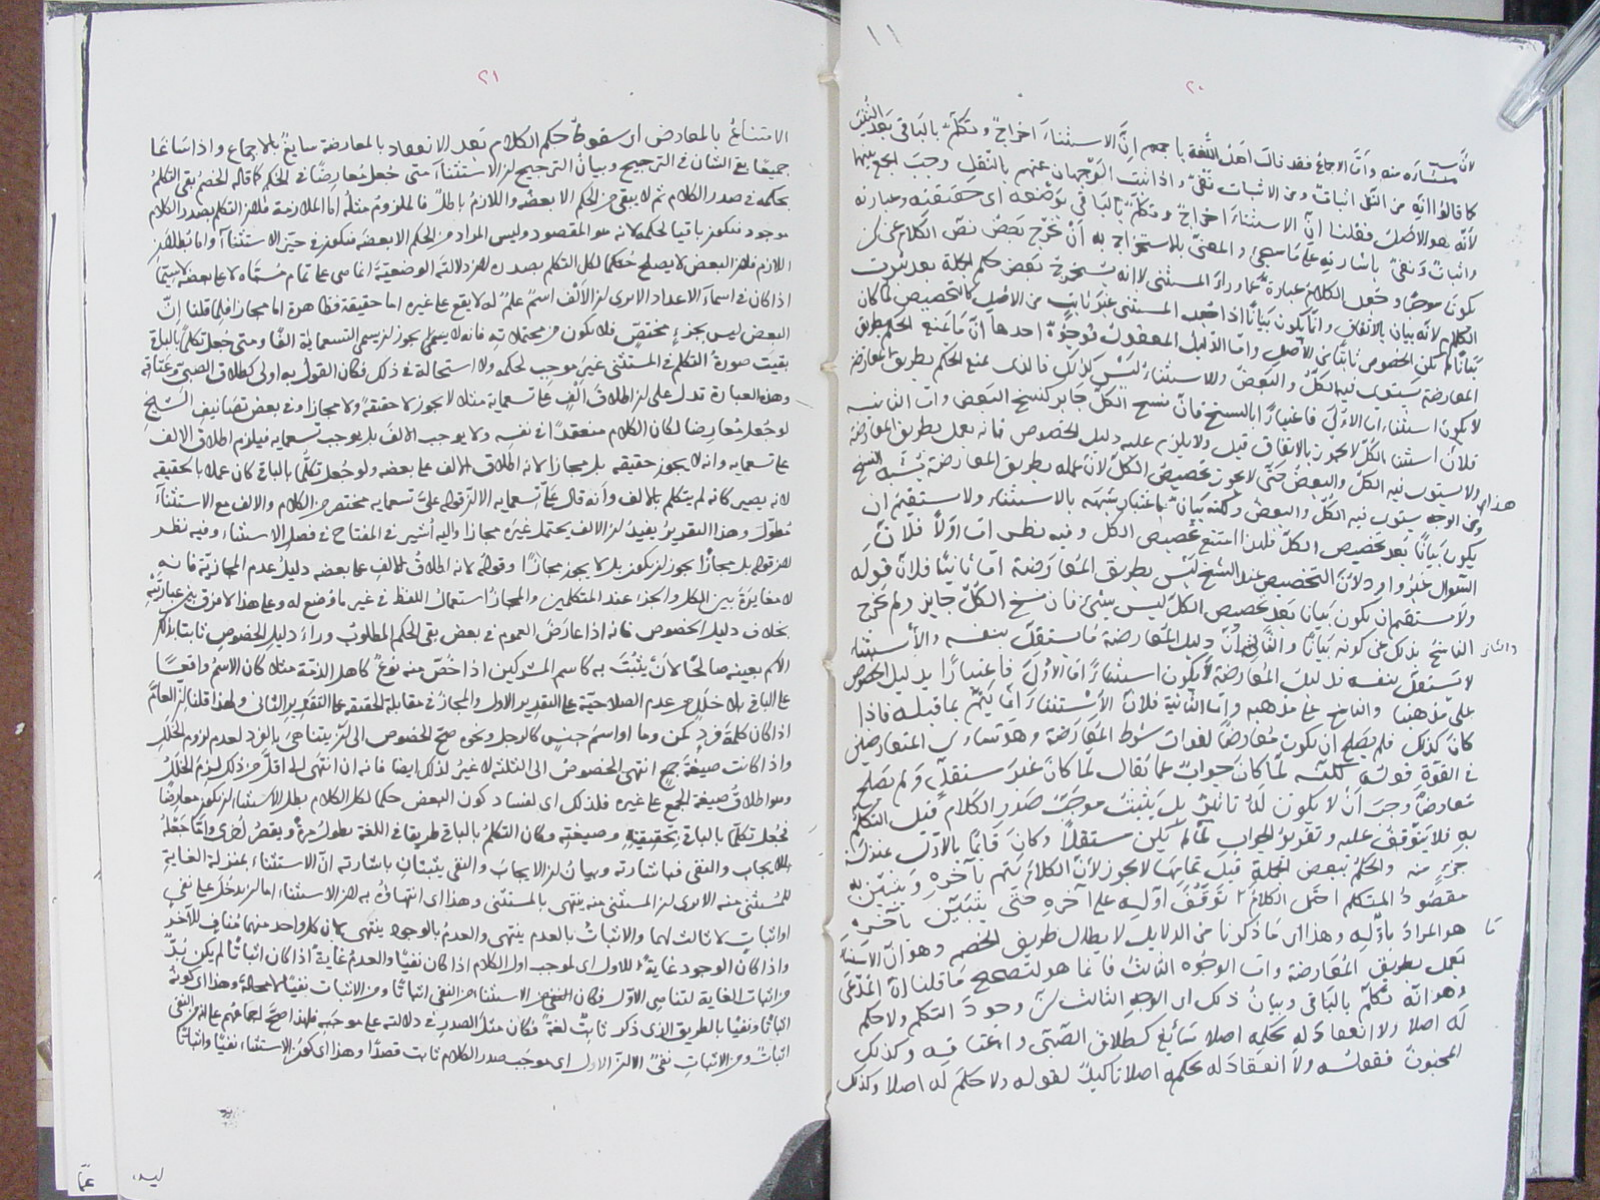 ١١
٢٠
لأنه مستثناه منه وأمّا الإجماع فقد قال أهل اللغة بأجمعهم إنّ الاستثناء إخراج وتكلم بالباقي بعد الثنيا
كما قالوا انه من النفي اثبات ومن الاثبات نفي واذا ثبت الوجهان عنهم بالنقل وجب الجمع بينهما
لأنّه هو الأصل فقلنا إنّ الاستثناء اخراج وتكلم بالباقي بوضعه اى حقيقته وعبارته
واثبات ونفي بإشارته على ما سيجئ والمعنى بالاستخراج به أن يخرج بعض نص الكلام عن أن
يكون موجبا وجعل الكلام عبارة عما وراء المستثنى لا انه يخرج بعض حكم الجملة بعد ثبوت
الكلام لأنه بيان بالاتفاق وانما يكون بيانا اذا جعل المستثنى غير ثابت من الأصل كالتخصيص لما كان
بيانا لم يكن الخصوص ثابتا من الأصل وامّا الدليل المعقول فوجوه احدها أنّ ما يمنع الحكم بطريق
المعارضة يستوى فيه الكل والبعض والاستثناء ليس كذلك فالذى يمنع الحكم بطريق المعارضة
لا يكون استثناء اما الأولى فاعتبارا بالنسخ فانّ نسخ الكل جايز كنسخ البعض وامّا الثانية
فلانّ استثنا الكل لا يجوز بالاتفاق قيل ولا يلزم عليه دليل الخصوص فانه يعمل بطريق المعارضة
هذا ولا يستوى فيه الكل والبعض حتى لا يجوز تخصيص الكل لأنّ عمله بطريق المعارضة يشبه النسخ
ومن الوجه يستوى فيه الكل والبعض ولكنه بيان باعتبار شبهه بالاستثناء ولا يستقيم ان
يكون بيانا بعد تخصيص الكل فلهذا امتنع تخصيص الكل وفيه نظر امّا اوّلا فلانّ
السؤال غير وارد لأنّ التخصيص عند الشيخ ليس بطريق المعارضة امّا ثانيا فلانّ قوله
ولا يستقيم ان يكون بيانا بعد تخصيص الكل ليس بشئ فان نسخ الكل جايز ولم يخرج
الناسخ بذلك عن كونه بيانا والثانى أنّ دليل المعارضة ما يستقل بنفسه والاستثناء
لا يستقل بنفسه فدليل المعارضة لا يكون استثناء امّا الأولى فاعتبارا بدليل الخصوص
على مذهبنا والناسخ على مذهبهم وامّا الثانية فلانّ الاستثناء انما يتم بما قبله فاذا
كان كذلك فلم يصلح ان يكون معارضا لفوات شرط المعارضة وهو تساوى المتعارضين
في القوة قوله لكنه لما كان جواب عما يقال لما كان غير مستقل ولم يصلح
معارضا وجب أن لا يكون له تأثير بل يثبت موجب صدر الكلام قبل التكلم
به فلا يتوقف عليه وتقرير الجواب لما لم يكن مستقلا وكان قائما بالأول بمنزلة
جزء منه والحكم ببعض الجملة قبل تمامها لا يجوز لأنّ الكلام يتم بآخره ويتبين به
مقصود المتكلم احتمل الكلام توقّف اوّله على آخره حتى يتبين بآخره
هو المراد باوّله وهذا اى ما ذكرنا من الدلايل لإبطال طريق الخصم وهو أنّ الاستثناء
يعمل بطريق المعارضة وامّا الوجوه الثالث فانما هو لتصحيح ما قلنا انّ المدّعى
وهو انّه تكلّم بالباقي وبيان ذلك اى الوجه الثالث أنّ وجود التكلم ولا حكم
له اصلا ولا انعقاد له بحكمه اصلا سائغ كطلاق الصبى واعتاقه وكذلك
المجنون فقوله ولا انعقاد له بحكمه اصلا تأكيد لقوله ولا حكم له اصلا وكذلك
٢١
الامتناع بالمعارض اى سقوط حكم الكلام بعد الانعقاد بالمعارضة سايغ بالاجماع واذا ساغا
جميعا بقي الشان فى الترجيح وبيان الترجيح ان الاستثناء متى جعل معارضا فى الحكم كما قاله الخصم بقى التكلم
بحكمه فى صدر الكلام ثم لا يبقى من الحكم الا بعضه واللازم باطل فالملزوم مثله اما الملازمة فلان التكلم بصدر الكلام
موجود فيكون باقيا لحكمه لانه هو المقصود وليس المراد من الحكم الا بعضه فيكون فى حيّز الاستثناء واما بطلان
اللازم فلان البعض لا يصلح حكما لكل التكلم بصدره لان دلالته الوضعية انما هى على تمام مسماه لا على بعضه لاسيما
اذا كان فى اسماء الاعداد الا يرى ان الألف اسم علم له لا يقع على غيره اما حقيقة فظاهرة اما مجازا فلما قلنا إنّ
البعض ليس بجزء مختص فلا يكون من محتملاته فانه لا يجوز ان يسمى التسعمائة الفا ومتى جعل تكلما بالباقى
بقيت صورة التكلم فى المستثنى غير موجب لحكمه ولا استحالة فى ذلك فكان القول به اولى كطلاق الصبى وعتاقه
وهذه العبارة تدل على ان اطلاق الف على تسعماية مثلا لا يجوز لا حقيقة ولا مجازا وفى بعض تصانيف الشيخ
لو جعل معارضا لكان الكلام منعقدا فى نفسه ولا يوجب الالف بل يوجب تسعمايه فيلزم اطلاق الالف
على تسعمايه وانه لا يجوز حقيقه بل مجازا لانه اطلاق الالف على بعضه ولو جعل تكلما بالباقى كان عملا بالحقيقه
لانه يصير كانه لم يتكلم بالالف وانه قال علىّ تسعمايه الا ان قوله علىّ تسعمايه مختصر من الكلام والالف مع الاستثناء
مطوّل وهذا التقرير يفيد ان الالف يحتمل غيره مجازا واليه أشير فى المفتاح فى فصل الاستثناء وفيه نظر
لان قوله بل مجازا يجوز ان يكون بل لا يجوز مجازا وقوله لانه اطلاق الالف على بعضه دليل عدم المجازية فانه
لا مغايرة بين الكل والجزء عند المتكلمين والمجاز استعمال اللفظ فى غير ما وضع له وعلى هذا لا فرق بين عبارتيه
بخلاف دليل الخصوص فانه اذا عارض العموم فى بعض بقى الحكم المطلوب وراء دليل الخصوص ثابتا بذلك
الاسم بعينه صالحا لأن يثبت به كاسم المشركين اذا خص منه نوع كاهل الذمة مثلا كان الاسم واقعا
على الباقى بلا خلل من عدم الصلاحية على التقدير الاول والمجاز فى مقابلة الحقيقه على التقدير الثانى ولهذا قلنا ان العام
اذا كان كلمة فرد كمن وما او اسم جنس كالرجل ونحوه صحّ الخصوص الى ان يتناهى بالفرد لعدم لزوم الخلل
واذا كانت صيغة جمع انتهى الخصوص الى الثلثه لا غير لذلك ايضا فانه ان انتهى الى اقل من ذلك لزم الخلل
وهو اطلاق صيغة الجمع على غيره فلذلك اى لفساد كون البعض حكما لكل الكلام بطل الاستثناء ان يكون معارضا
فجعل تكلما بالباقى بحقيقته وصيغته وكان التكلم بالباقى طريقا فى اللغة يطول مرة ويقصر أخرى وانما جعل
للايجاب والنفى فباشارته وبيان ان الايجاب والنفى يثبتان باشارته انّ الاستثناء بمنزلة الغاية
للمستثنى منه الا يرى ان المستثنى منه ينتهى بالمستثنى وهذا اى انتهاؤه به لان الاستثناء اما ان يدخل على نفى
او اثبات لا ثالث لهما والاثبات بالعدم ينتهى والعدم بالوجود ينتهى لان كل واحد منهما مناف للآخر
واذا كان الوجود غاية للاول اى لموجب اول الكلام اذا كان نفيا والعدم غاية اذا كان اثباتا لم يكن بدّ
من اثبات الغاية لتناهى الاوّل فكان الاستثناء من النفى اثباتا ومن الاثبات نفيا لا محالة وهذا اى كونه
اثباتا ونفيا بالطريق الذى ذكر ثابت لغة فكان مثل الصدر فى دلالته على موجبه فلهذا صحّ اجماعهم على انه من النفى
اثبات ومن الاثبات نفى الا ان الاول اى موجب صدر الكلام ثابت قصدا وهذا اى كون الاستثناء نفيا واثباتا